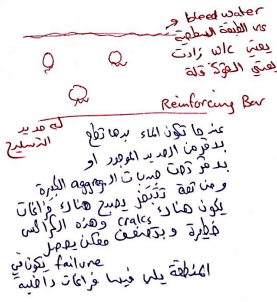 bleed water
على الطبقة السطحية
يعني w/c زادت
يعني القوة قلة
Reinforcing Bar
له حديد
التسليح
عندما تكون الماء بدها تطلع
بدفر من الحديد الموجود او
بدفر تحت حبيبات الـ aggreg الكبيرة
ومن ثمة تتبخر يصبح هناك فراغات
يكون هناك cracks وهذه الكراكس
خطيرة و بتضعف ممكن يحصل
failure يكون في
المنطقة يلي فيها فراغات داخلية